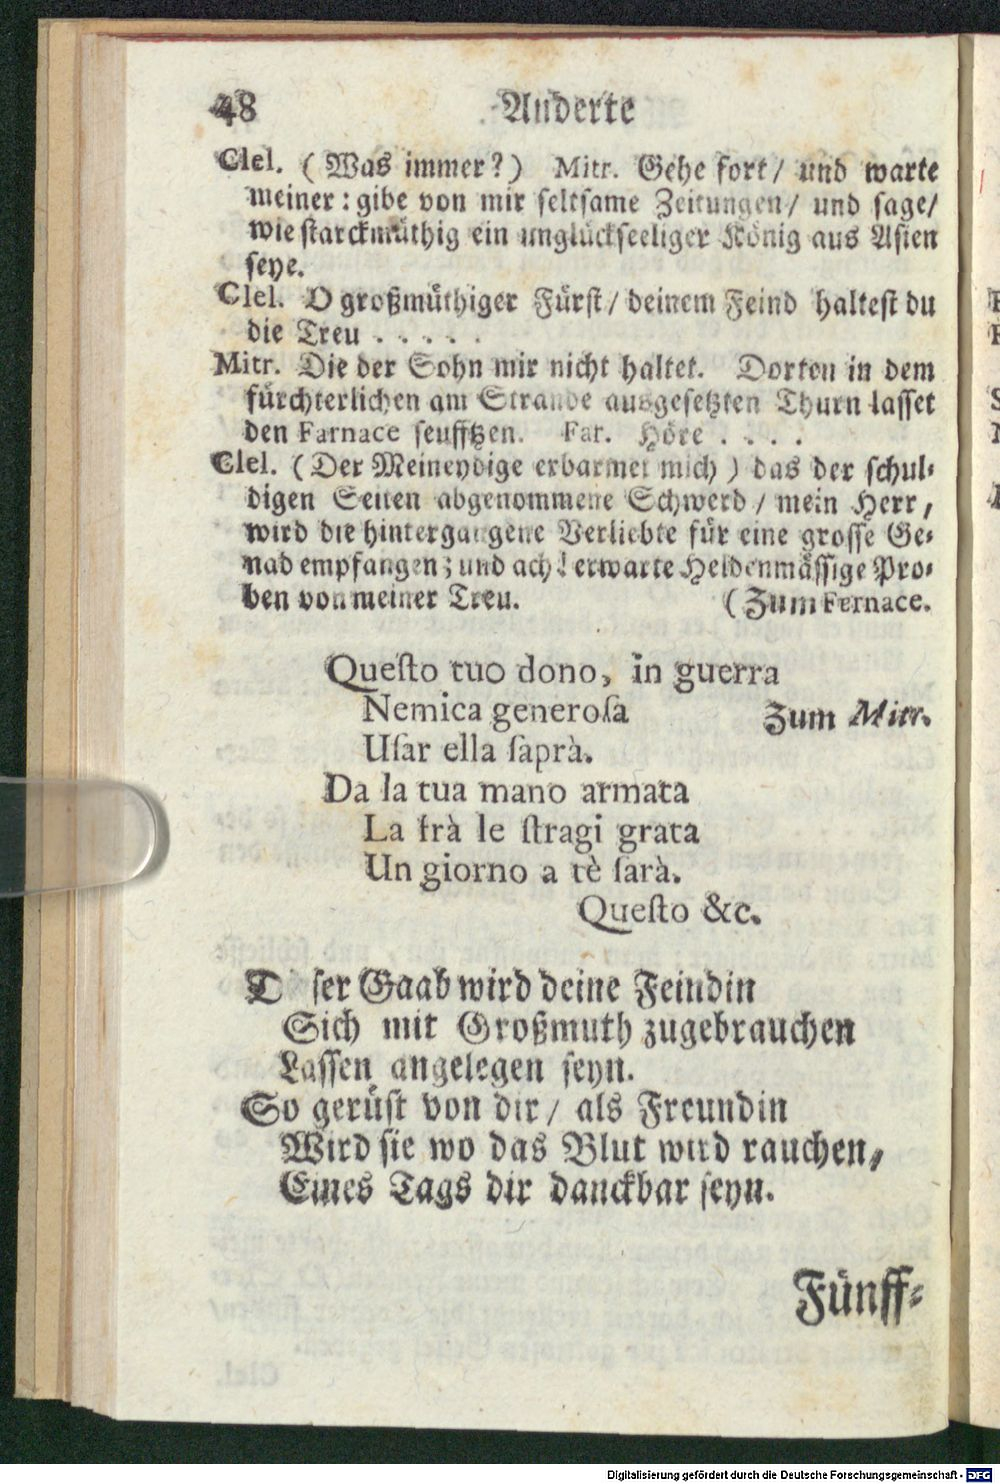 48 Anderte
Clel. (Was immer?) Mitr. Gehe fort/ und warte
meiner: gibe von mir seltsame Zeitungen/ und sage/
wie starckmüthig ein unglückseeliger König aus Asien
seye.
Clel. O großmüthiger Fürst/ deinem Feind haltest du
die Treu . . . . .
Mitr. Die der Sohn mir nicht haltet. Dorten in dem
fürchterlichen am Strande ausgesetzten Thurn lasset
den Farnace seufftzen. Far. Höre . . . .
Clel. (Der Meineydige erbarmet mich) das der schul-
digen Seiten abgenommene Schwerd/ mein Herr,
wird die hintergangene Verliebte für eine grosse Ge-
nad empfangen; und ach! erwarte Heldenmässige Pro-
ben von meiner Treu. (Zum Fernace.
Questo tuo dono, in guerra
Nemica generosa Zum Mitr.
Usar ella saprà.
Da la tua mano armata
La frà le stragi grata
Un giorno a tè sarà.
Questo &c.
ser Gaab wird deine Feindin
Sich mit Großmuth zugebrauchen
Lassen angelegen seyn.
So gerüst von dir/ als Freundin
Wird sie wo das Blut wird rauchen,
Eines Tags dir danckbar seyn.
Fünff-
Digitalisierung gefördert durch die Deutsche Forschungsgemeinschaft - DFG